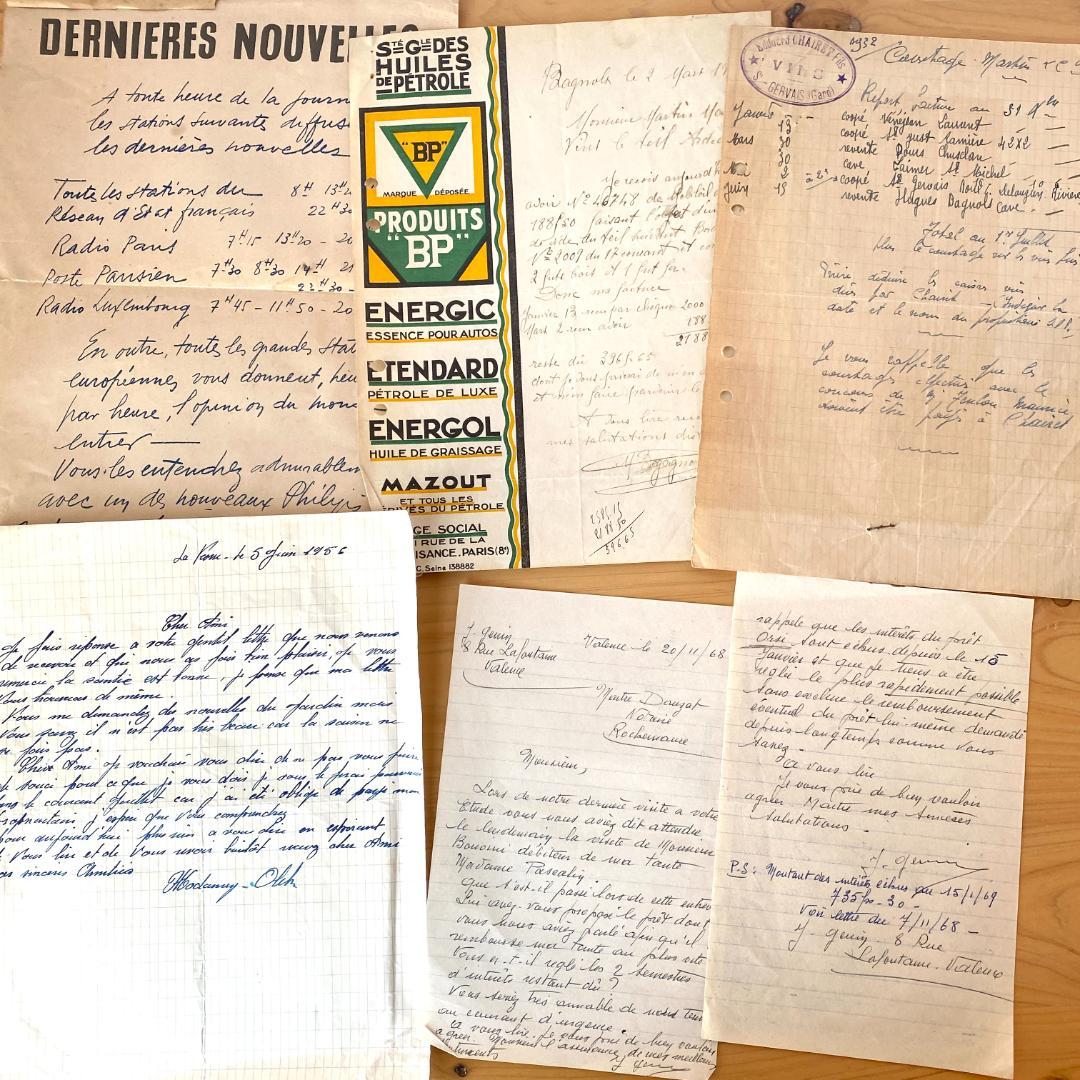 DERNIERES NOUVELLES
A toute heure de la journ
les stations suivantes diffus
les dernières nouvelles
Toutes les stations du 8H 13H2
Réseau d'Etat français 22H30
Radio Paris 7H15 13H20 - 20
Poste Parisien 7H30 8H30 14H 21
22H30 -
Radio Luxembourg 7H45 - 11H50 - 20
En outre, toutes les grandes stat
européennes vous donnent, heu
par heure, l'opinion du mon
entier —
Vous les entendrez admirablem
avec un de nouveaux Philips
STÉ GLE DES
HUILES
DE PÉTROLE
"BP"
MARQUE DÉPOSÉE
PRODUITS
"BP"
ENERGIC
ESSENCE POUR AUTOS
ETENDARD
PÉTROLE DE LUXE
ENERGOL
HUILE DE GRAISSAGE
MAZOUT
ET TOUS LES
ÉRIVÉS DU PÉTROLE
GE SOCIAL
RUE DE LA
ISANCE, PARIS (8e)
C. Seine 138882
Bagnols le 2 Mars 19
Monsieur Martin Ma
Vins le Teil Ardè
Je reçois aujourd'h
avoir N° 46748 de
188f50 faisant l'objet d'un
N° 2009 du
2 futs bois et 1 fut fer
Donc ma facture
Janvier 13 reçu par chèque 2000
Mart 2 reçu avoir 188
2188
reste dû 396f.65
dont je vous prierai de m'en
et m'en faire parvenir le
A vous lire rece
mes salutations dis
2585.15
2188.50
396.65
Edouard CHAIRET Fils
VINS
St GERVAIS (Gard)
1932 Courtage Martin
Report facture au 31
Janvier 13 coopé Vénéjean Laurent
Mars 30 coopé St just Ramière 42X2
30 revente Rours Chusclan
Mai 2 cave St Michel
Juin 18 coopé St Gervais
revente Hugues Bagnols cave.
Total au 1er Juillet
Plus le courtage sur les vins
Prière déduire les caisses vins
dûs par Chairet — Indiquer la
date et le nom du propriétaire S.V.P.
Je vous rappelle que les
courtages effectués avec le
concours de Mr Maurice
doivent être payés à Chairet
le 5 Juin 1956
Cher Ami
Je fais réponse a votre gentil lettre que nous venons
de recevoir et qui nous as fais bien plaisir, je vous
remercie la santée est bonne, je pense que ma lettre
Vous trouveras de même.
Vous me demandez des nouvelles du Jardin mais
Vous savez il n'est pas très beau car la saison ne
fais pas.
Chère Ami je voudrais vous dire de ne pas vous faire
de souci pour ce que je vous dois, je vous le ferai parvenir
dans le courant Juillet car j'ai été obligé de payé mon
j'espère que Vous comprendrez
pour aujourd'hui plus rien a vous dire en esperant
Vous lire et de Vous revoir bientôt recevez cher Ami
sinceres Amitiés
J. Genin
8 Rue Lafontaine
Valence
Valence le 20/11/68
Maitre Dauzat
Notaire
Rochemaure
Monsieur,
Lors de notre dernière visite a votre
Etude vous nous aviez dit attendre
le lendemain la visite de Monsieur
Bonomi débiteur de ma tante
Madame Pascalin.
Que s'est-il passé lors de cette entrevue
Lui avez-vous proposé le prêt dont
vous nous aviez parlé afin qu'il
rembourse ma tante au plus vite
Vous a-t-il reglé les 2 semestres
d'intérêts restant dû ?
Vous seriez très aimable de nous tenir
au courant d'urgence.
A vous lire. Je vous prie de bien vouloir
agréer Monsieur l'assurance de mes meilleurs
sentiments J. Genin
rappele que les intérêts du prêt
Orsi sont échus depuis le 15
Janvier et que je tiens a être
réglé le plus rapidement possible
sans exclure le remboursement
éventuel du prêt lui-même demandé
depuis longtemps comme vous
savez -
A vous lire
Je vous prie de bien vouloir
agréer Maitre mes sincères
salutations -
J. Genin
P.S : Montant des intérêts échus au 15/1/69
735fr - 30 -
Voir lettre du 7/11/68 -
J. Genin - 8 Rue
Lafontaine - Valence